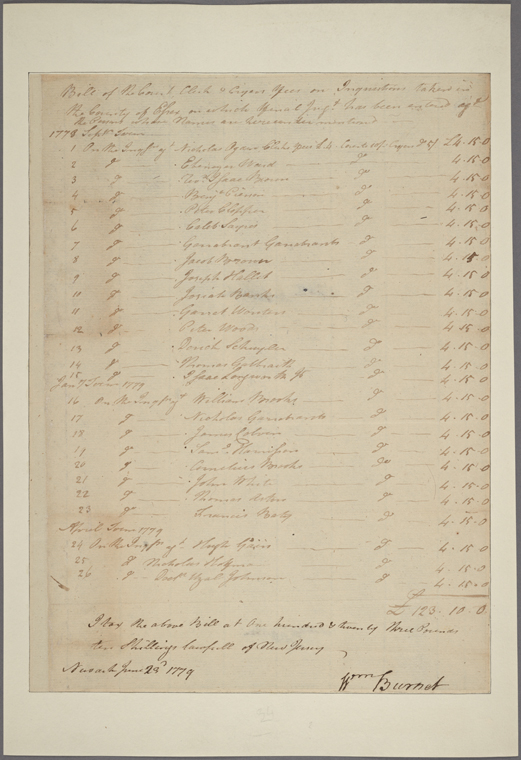 Bill of the Court Clerk & Cryers fees on Inquisitions taken in
the County of Essex on which final Judgt has been entered agt
the Persons whose Names are hereunder mentioned
1778 Septr Term
1 On the Inqn agt Nicholas Clerks fees £4 Cryer £4.15.0
2 do Ebenezer Ward do 4.15.0
3 do Thos Isaac Brown do 4.15.0
4 do Benjn Pierson do 4.15.0
5 do Peter Clopper do 4.15.0
6 do Caleb Sayres do 4.15.0
7 do Garrabrant Garrabrants do 4.15.0
8 do Jacob Brower do 4.15.0
9 do Joseph Hallet do 4.15.0
10 do Josiah Banks do 4.15.0
11 do Garret Wouters do 4.15.0
12 do Peter Wood do 4.15.0
13 do Schuyler do 4.15.0
14 do Thomas Galbraith do 4.15.0
15 do Isaac Longworth do 4.15.0
Jany Term 1779
16 On the Inqn agt William Brooks do 4.15.0
17 do Nicholas Garrabrants do 4.15.0
18 do James Colvin do 4.15.0
19 do Saml Harrison do 4.15.0
20 do Cornelius Brooks do 4.15.0
21 do John White do 4.15.0
22 do Thomas do 4.15.0
23 do Francis do 4.15.0
April Term 1779
24 On the Inqn agt do 4.15.0
25 do Nicholas Hofman do 4.15.0
26 do Uzal Johnson do 4.15.0
£ 123.10.0
I tax the above Bill at One hundred & twenty three Pounds
ten Shillings lawfull of New Jersey
Newark June 23d 1779
Wm Burnet